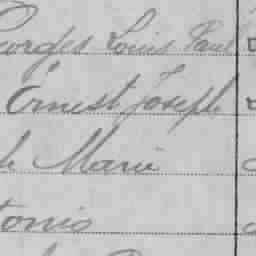 Georges Louis Paul
Ernest Joseph
Marie